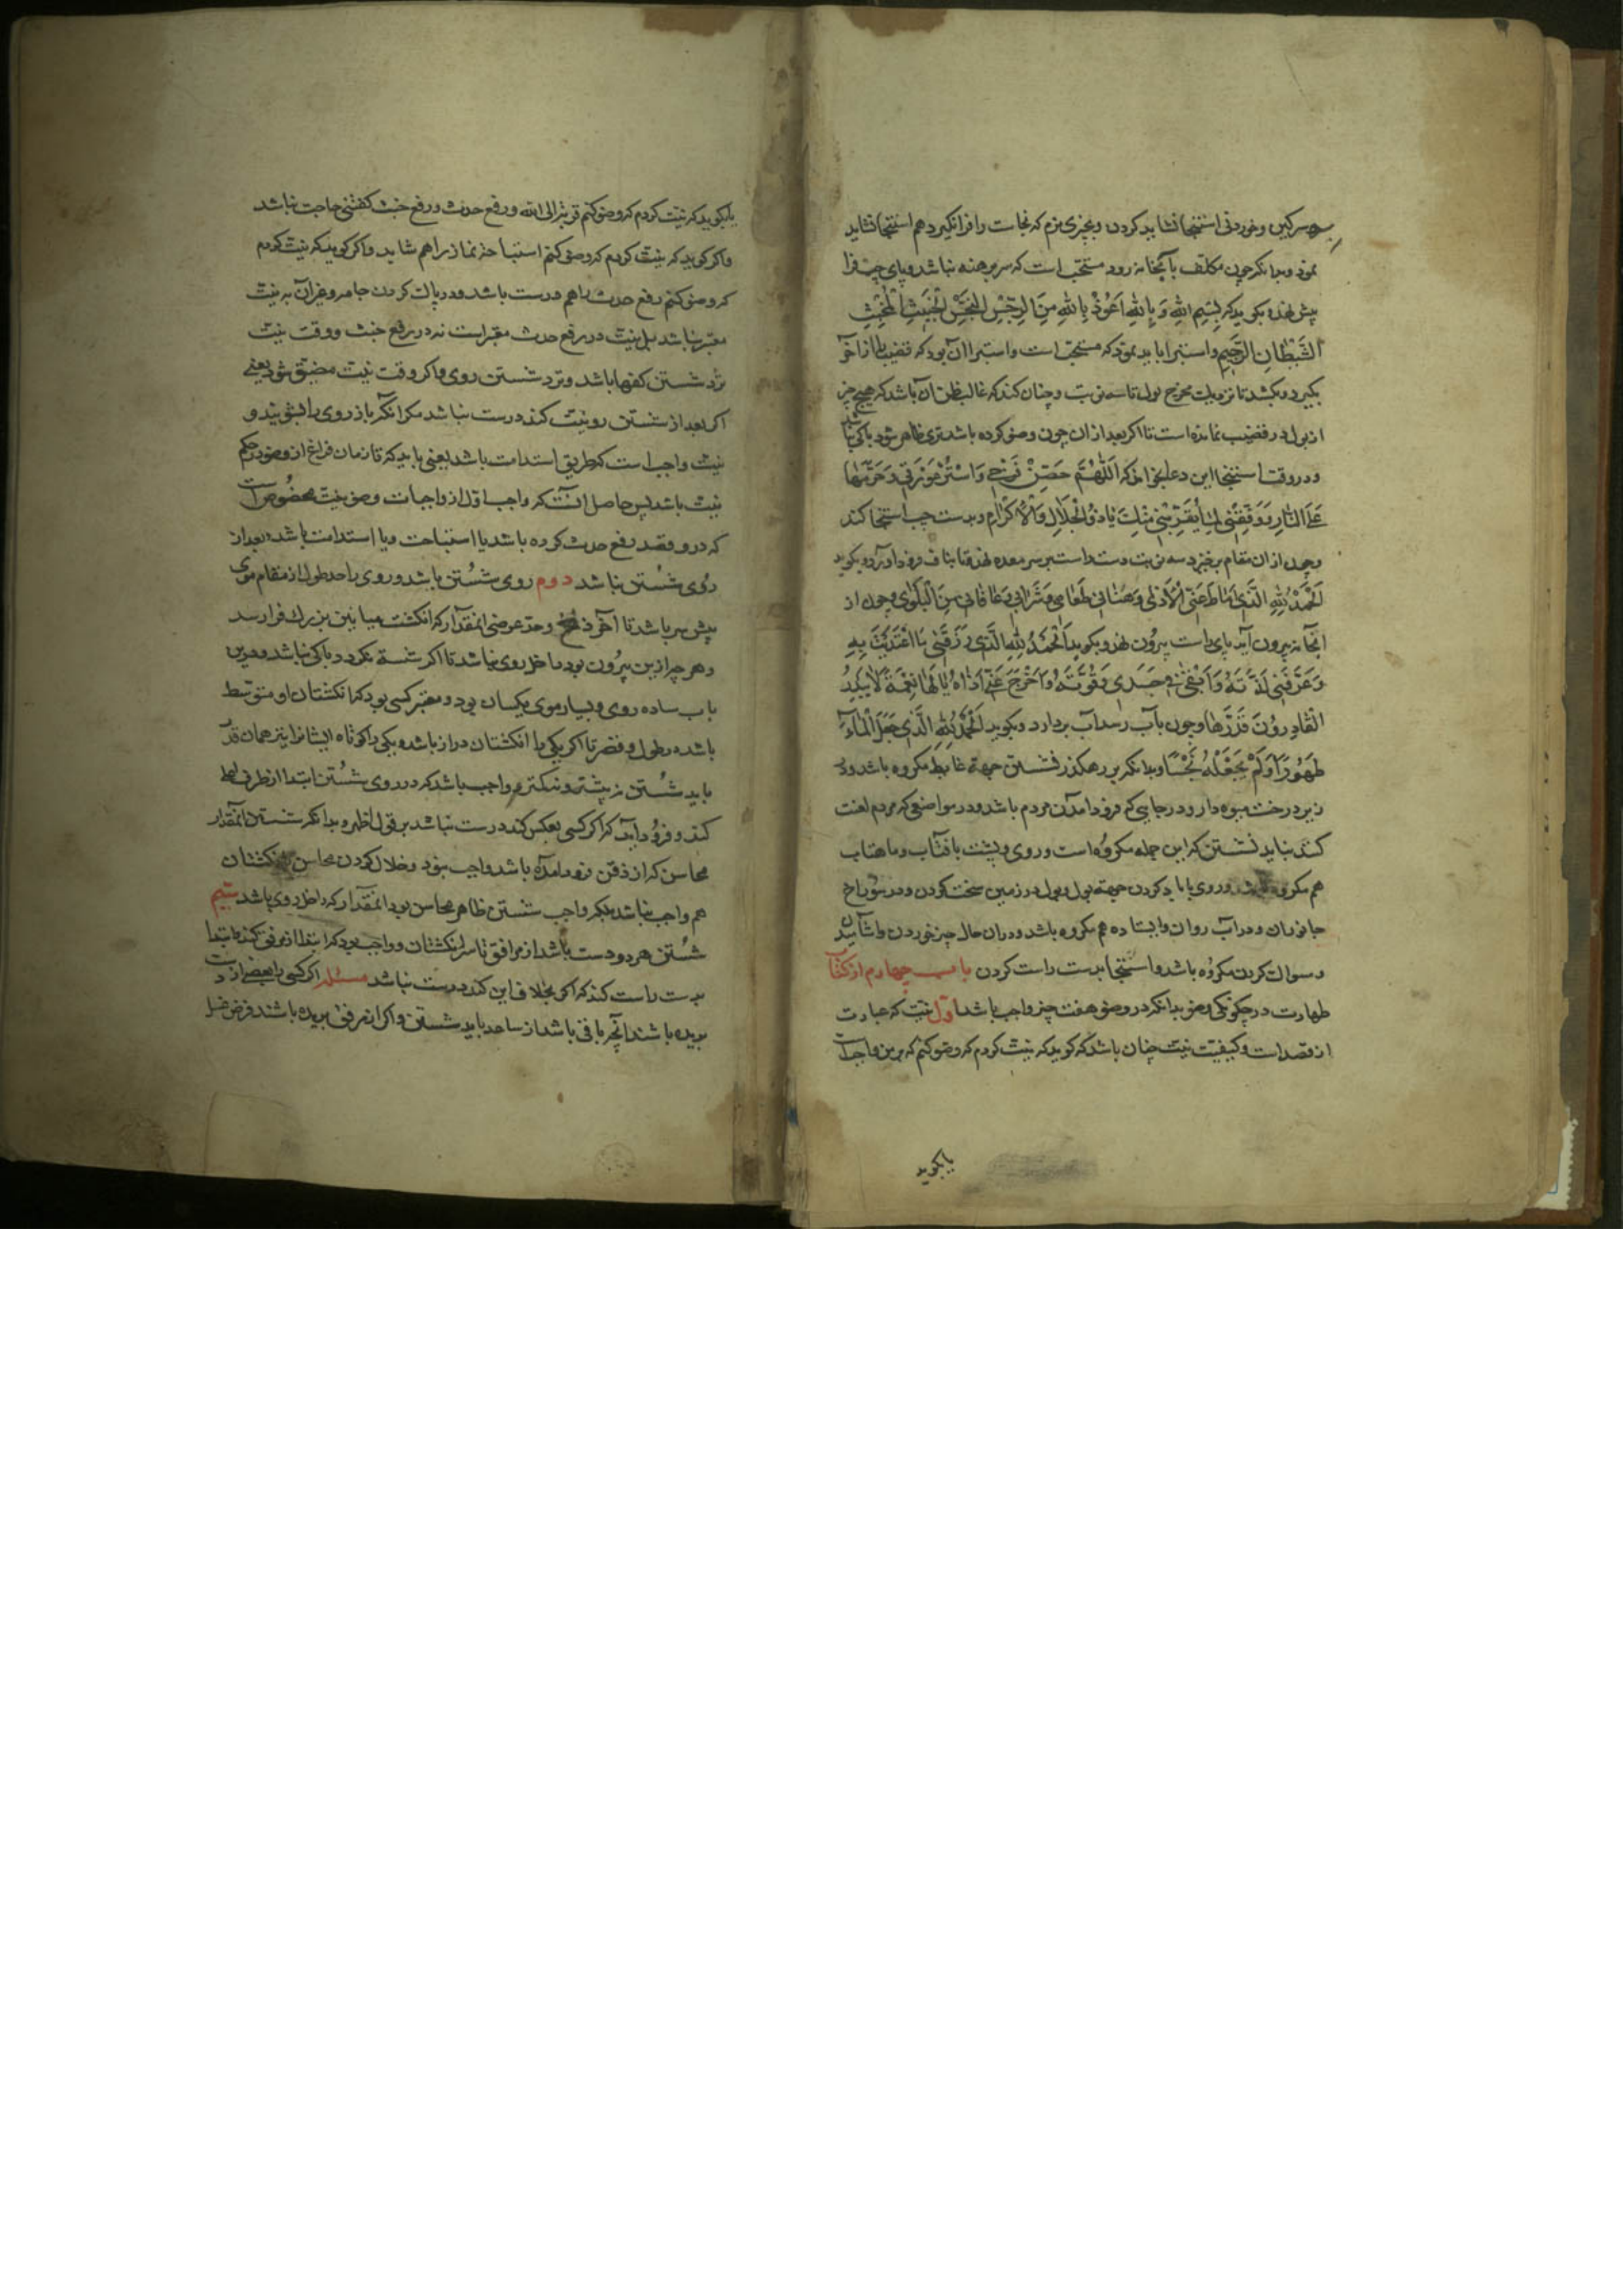 سرکین وخوردنی استنجا نشاید کردن وبچیزی نرم که نجاست را فرانکیرد هم استنجا نشاید
نمود وبدانکه چون مکلف بآبخانه رود مستحب است که سر برهنه نباشد وپای چپ فرا
پیش نهد وبکوید که بِسْمِ اللهِ وَ بِاللهِ اَعُوذُ بِاللهِ مِنَ الرِّجْسِ النَّجِسِ الْخَبیثِ الْمُخْبِثِ
الشَّیْطَانِ الرَّجِیمِ واستبرا باید نمود که مستحب است واستبرا آن بود که قضیب را از آخر
بکیرد وبکشد تا نزدیک مخرج بول تا سه نوبت وچنان کند که غالب ظن آن باشد که هیچ چیز
از بول در قضیب نمانده است تا اکر بعد از ان چون وضو کرده باشد تری ظاهر شود باکی نباشد
ودر وقت استنجا این دعا بخواند که اَللّٰهُمَّ حَصِّنْ فَرْجِی وَاسْتُرْ عَوْرَتِی وَحَرِّمْهَا
عَلَی النَّارِ وَوَفِّقْنِی لِمَا یُقَرِّبُنِی مِنْكَ یَا ذَا الْجَلَالِ وَالْاِکْرَامِ وبدست چپ استنجا کند
وچون از ان مقام برخیزد سه نوبت دست راست بر سر معده نهد وتا بناف فرود آورد وبکوید
اَلْحَمْدُ لِلّٰهِ الَّذِی اَمَاطَ عَنِّی الْاَذٰی وَهَنَّانِی طَعَامِی وَشَرَابِی وَعَافَانِی مِنَ الْبَلْوٰی وچون از
آبخانه بیرون آید پای راست بیرون نهد وبکوید اَلْحَمْدُ لِلّٰهِ الَّذِی رَزَقَنِی مَا اغْتَذَیْتُ بِهِ
وَعَرَّفَنِی لَذَّتَهُ وَاَبْقٰی فِی جَسَدِی قُوَّتَهُ وَاَخْرَجَ عَنِّی اَذَاهُ یَا لَهَا نِعْمَةً لَا یَقْدِرُ
الْقَادِرُونَ قَدْرَهَا وچون بآب رسد آب بردارد وبکوید اَلْحَمْدُ لِلّٰهِ الَّذِی جَعَلَ الْمَاءَ
طَهُورًا وَلَمْ یَجْعَلْهُ نَجِسًا وبدانکه بر رهکذر نشستن جهة غایط مکروه باشد ودر
زیر درخت میوه دار ودر جایی که فرود آمدن مردم باشد ودر مواضعی که مردم لعنت
کنند نباید نشستن که این جمله مکروه است وروی وپشت بآفتاب وماهتاب
هم مکروه باشد وروی بباد کردن جهة بول وبول در زمین سخت کردن ودر سوراخ
جانوران ودر آب روان وایستاده هم مکروه باشد ودران حال چیز خوردن واشامیدن
وسواك کردن مکروه باشد واستنجا بدست راست کردن باب چهارم از کتاب
طهارت در چکونکی وضو بدانکه در وضو هفت چیز واجب باشد اول نیت که عبارت
از قصد است وکیفیت نیت چنان باشد که کوید که نیت کردم که وضو کنم که برمن واجبست
یا بکوید
یا بکوید که نیت کردم که وضو کنم قربة الی الله ورفع حدث ورفع خبث کفتنی حاجت نباشد
واکر کوید که نیت کردم که وضو کنم استباحة نماز را هم شاید واکر کوید که نیت کردم
که وضو کنم رفع حدث را هم درست باشد ودر پاك کردن جامه وغیر آن به نیت
معتبر نباشد بل نیت در رفع حدث معتبر است نه در رفع خبث ووقت نیت
نزد شستن کفها باشد ونزد شستن روی واکر وقت نیت مضیق شود یعنی
اکر بعد از شستن رو نیت کند درست نباشد مکر انکه باز روی را بشوید و
نیت واجب است که طریق استدامت باشد یعنی باید که تا زمان فراغ از وضو در حکم
نیت باشد پس حاصل آنست که واجب اول از واجبات وضو نیت مخصوص است
که درو قصد رفع حدث کرده باشد یا استباحت ویا استدامت باشد وبعد از
روی شستن نباشد دوم روی شستن باشد وروی را حد طول از مقام موی
پیش سر باشد تا آخر ذقن وحد عرضی انمقدار که انکشت میانین بزرك فرا رسد
وهرچه ازین بیرون بود داخل روی نباشد تا اکر شسته نکردد باکی نباشد ودرین
باب ساده روی وبسیار موی یکسان بود ومعتبر کسی بود که انکشتان او متوسط
باشد در طول وقصر تا اکر یکی را انکشتان دراز باشد ویکی را کوتاه ایشانرا نیز همان قدر
باید شستن نه بیشتر ونه کمتر وواجب باشد که در روی شستن ابتدا از طرف اعلی
کند وفرود آید که اکر کسی بعکس کند درست نباشد بر قول اظهر وبدانکه شستن انمقدار
محاسن که از ذقن فرود آمده باشد واجب نبود وخلال کردن محاسن انکشتان
هم واجب نباشد بلکه واجب شستن ظاهر محاسن بود انمقدار که داخل روی باشد سیم
شستن هر دو دست باشد از مرافق تا سر انکشتان وواجب بود که ابتدا از مرفق کند وابتدا
بدست راست کند که اکر بخلاف این کند درست نباشد مسئله اکر کسی را بعضی از دست
بریده باشند آنچه باقی باشد از ساعد باید شستن واکر از مرفق بریده باشند فرض غسل